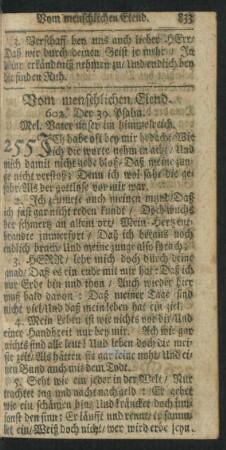 Vom menschlichen Elend. 833
3. Verschaff bey uns auch lieber HErr/
Daß wir durch deinen Geist je mehr / In
dein'r erkändtniß nehmen zu/ Und endlich bey
dir finden Ruh.
Vom menschlichen Elend.
602. Der 39. Psalm.
Mel. Vater unser im himmelreich.
255 Ich habe oft bey mir gedacht/ Wie
ich die warte nehm in acht/ Und
mich damit nicht gebe bloß/ Daß meine zun-
ge nicht verstoß: Denn ich wol sahe die ge-
fahr/ Als der gottlose vor mir war.
2. Ich zeumete auch meinen mund/ Daß
ich fast gar nicht reden kundt / Doch wuchs
der schmertz an allem ort/ Mein Hertz
brandte immerfort / Daß ich
endlich brach/ Und meine zunge also sprach:
3. HERR/ lehr mich doch durch deine
gnad/ Daß es ein ende mit mir hat: Daß ich
nur Erde bin und thon / Auch wieder hier
muß bald davon: Daß meiner Tage sind
nicht viel/ Und daß mein leben hat ein ziel.
4. Mein Leben ist wie nichts vor dir/ Und
einer Handbreit nur bey mir. Ach wie gar
nichts sind alle leut! Und leben doch die mei-
ste zeit/ Als hätten sie gar keine noht/ Und ei-
nen Bund auch mit dem Todt.
5. Seht wie ein jeder in der Welt / Nur
trachtet und nacht nach geld: Er gehet
wie ein schämen hin/ Und kräncket doch umb-
sonst den sinn: Er läufft und rennt/ er samm-
let ein/ Weiß doch nicht/ wer wird erbe seyn.